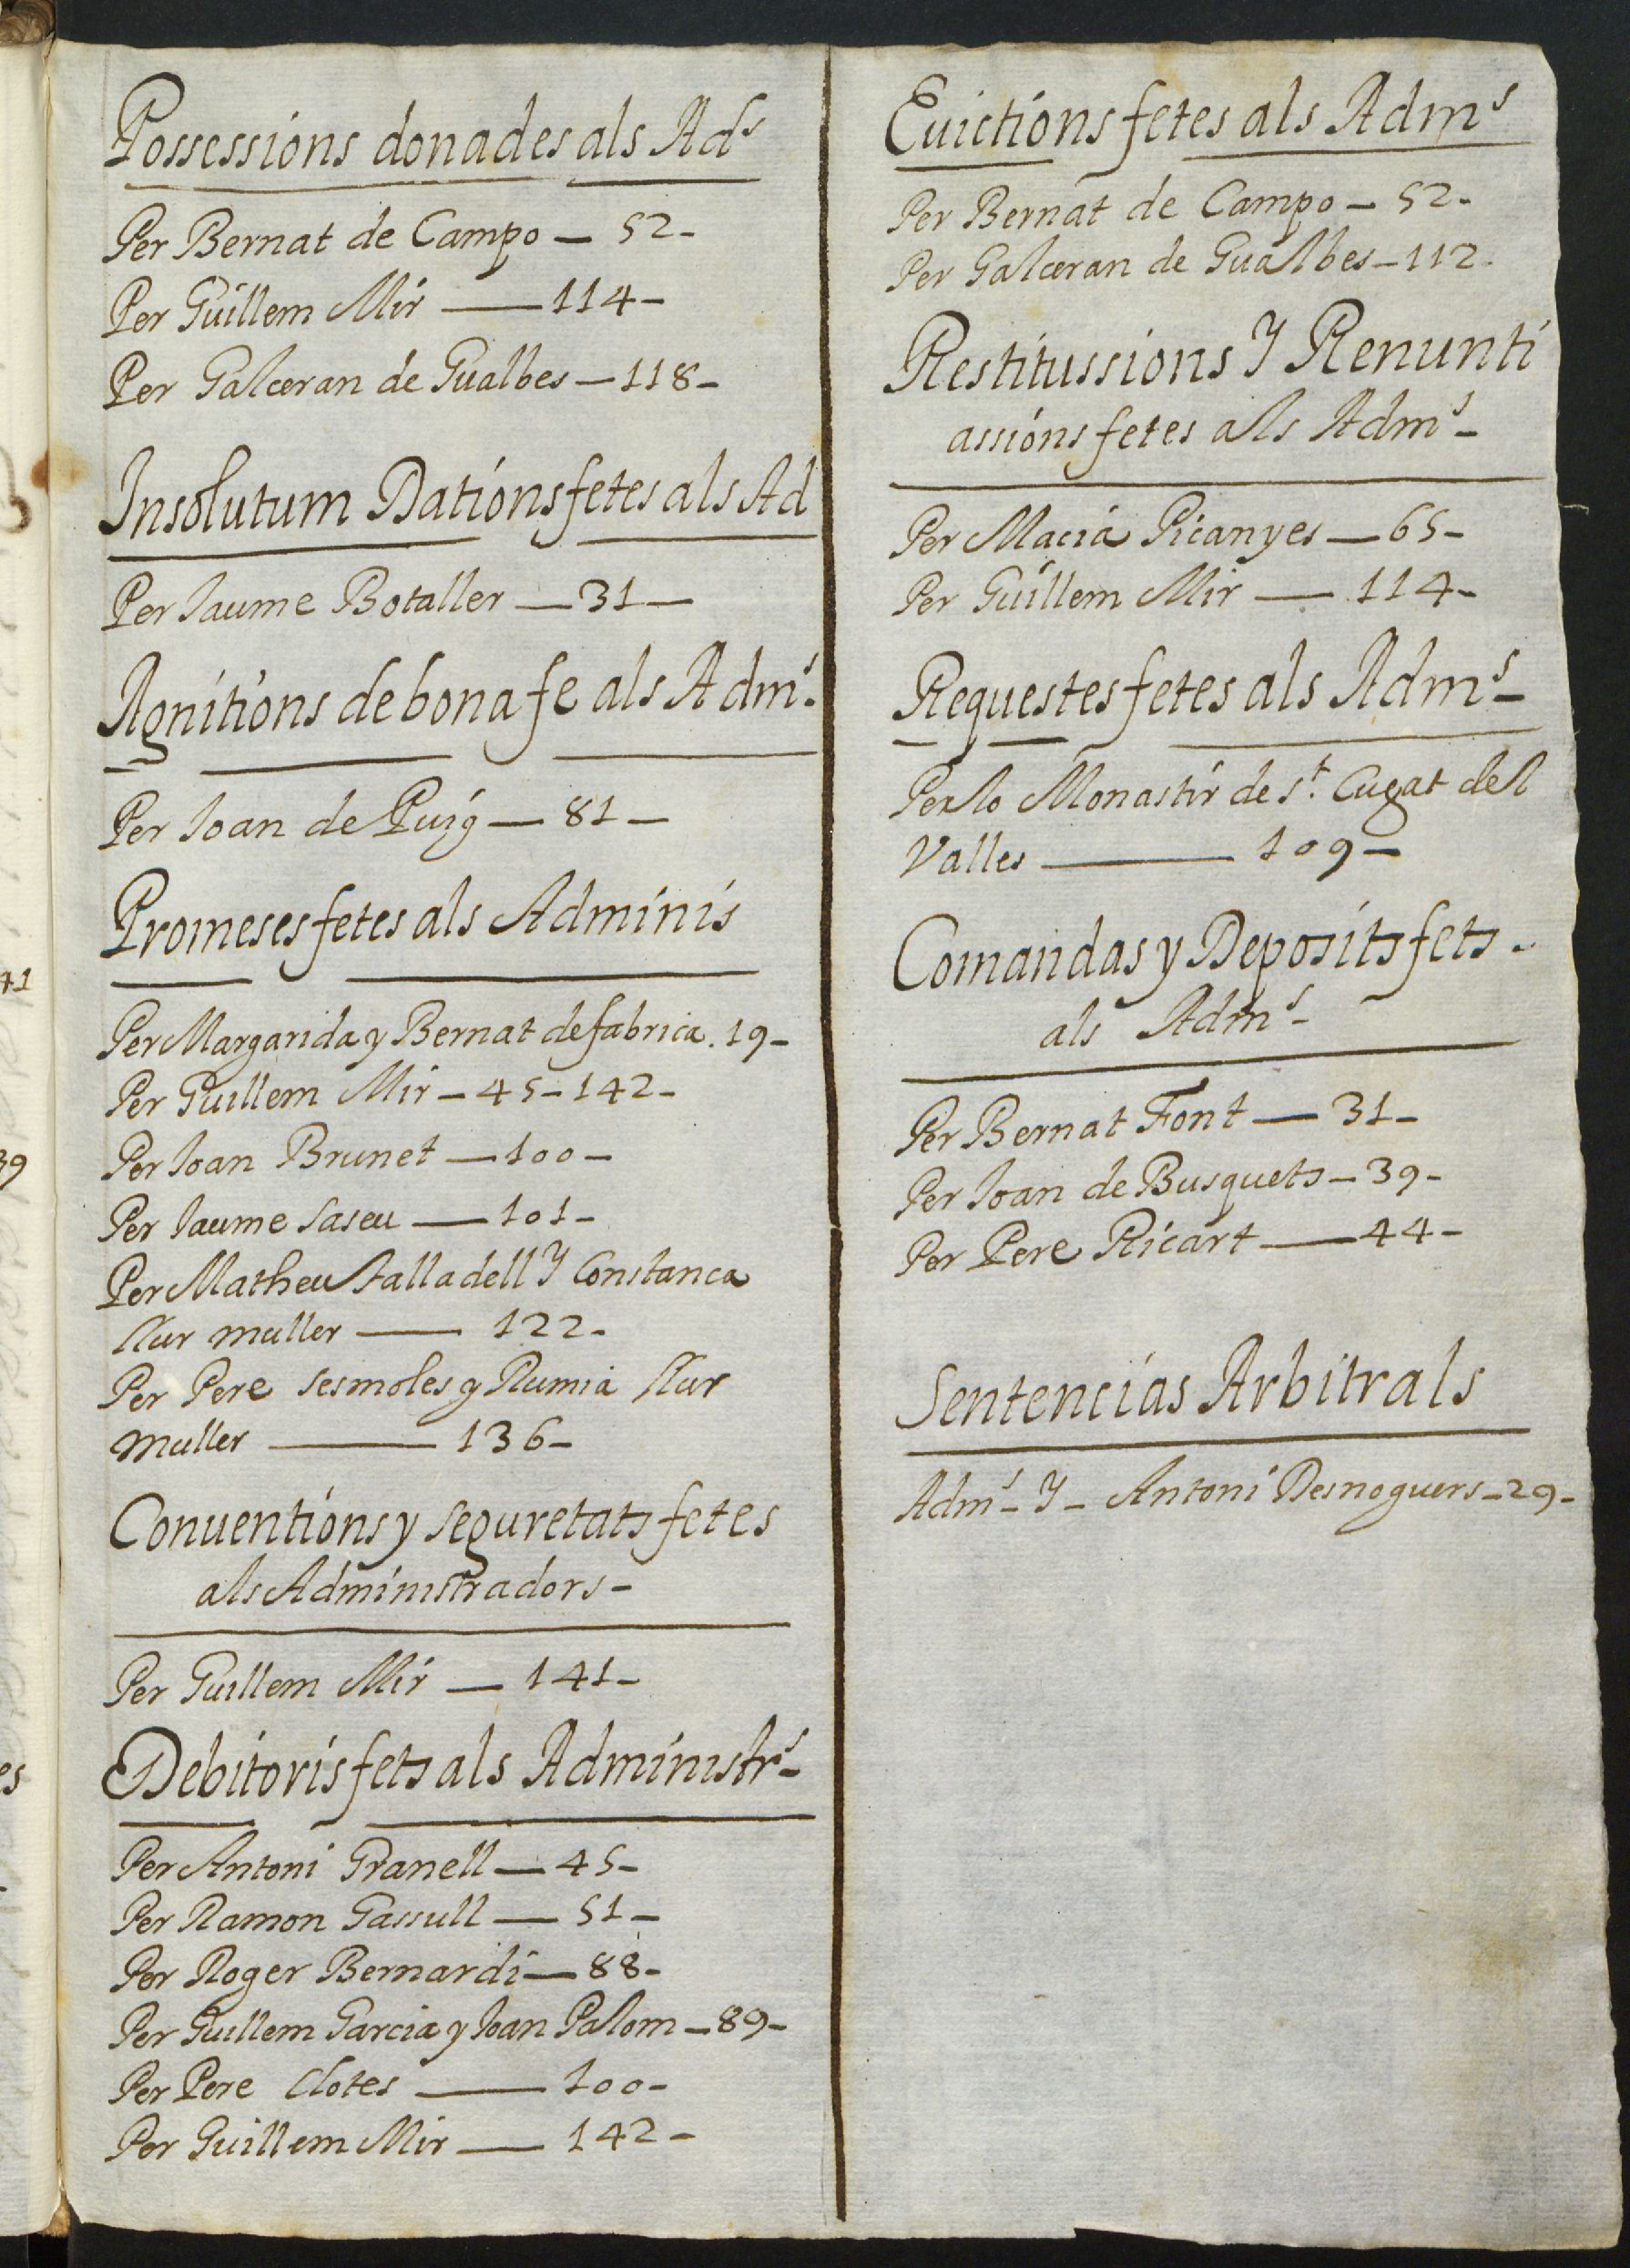 Possessions donades als Ads
Per Bernat de Campo — 52-
Per Guillem Mir — 114-
Per Galceran de Gualbes — 118-
Insolutum Dations fetes als Ad
Per Jaume Botaller — 31 —
Agnitions de bona fe als Adms.
Per Joan de Puig — 81 —
Promeses fetes als Adminis
Per Margarida y Bernat de fabrica. 19-
Per Guillem Mir - 45 - 142-
Per Joan Brunet — 100 -
Per Jaume Saseu — 101 -
Per Matheu Salladell Y Constanca
llur muller — 122-
Per Pere Sesmoles y Rumia llur
muller — 136-
Conuentions y seguretats fetes
als Administradors-
Per Guillem Mir — 141-
Debitoris fets als Administrs-
Per Antoni Granell — 45-
Per Ramon Gassull — 51 -
Per Roger Bernardi — 88-
Per Guillem Garcia y Joan Palom - 89-
Per Pere Clotes — 100-
Per Guillem Mir — 142 -
Euictions fetes als Adms
Per Bernat de Campo - 52-
Per Galceran de Gualbes - 112-
Restitussions Y Renunti
assions fetes als Adms-
Per Macia Picanyes — 65-
Per Guillem Mir — 114-
Requestes fetes als Adms-
Per lo Monastir de St. Cugat del
Valles — 109 —
Comandas y Deposits fets -
als Adms-
Per Bernat Font — 31-
Per Joan de Busquets - 39-
Per Pere Ricart — 44-
Sentencias Arbitrals
Adms- Y - Antoni Desnoguers - 29-
41
39
es